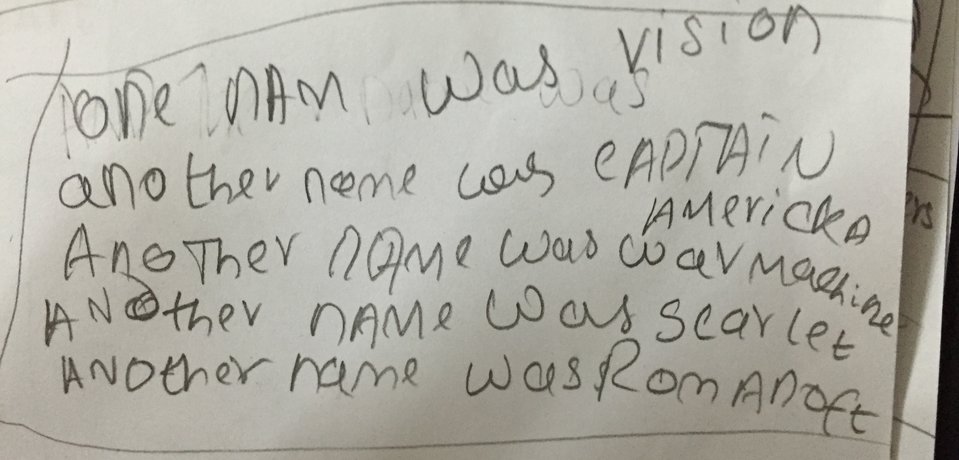 one nAM was vision
another name was CAPTAiN
AMerickA
AnoTher nAMe was warmachine
ANother nAMe was scarlet
ANother name was RomANoft
ers